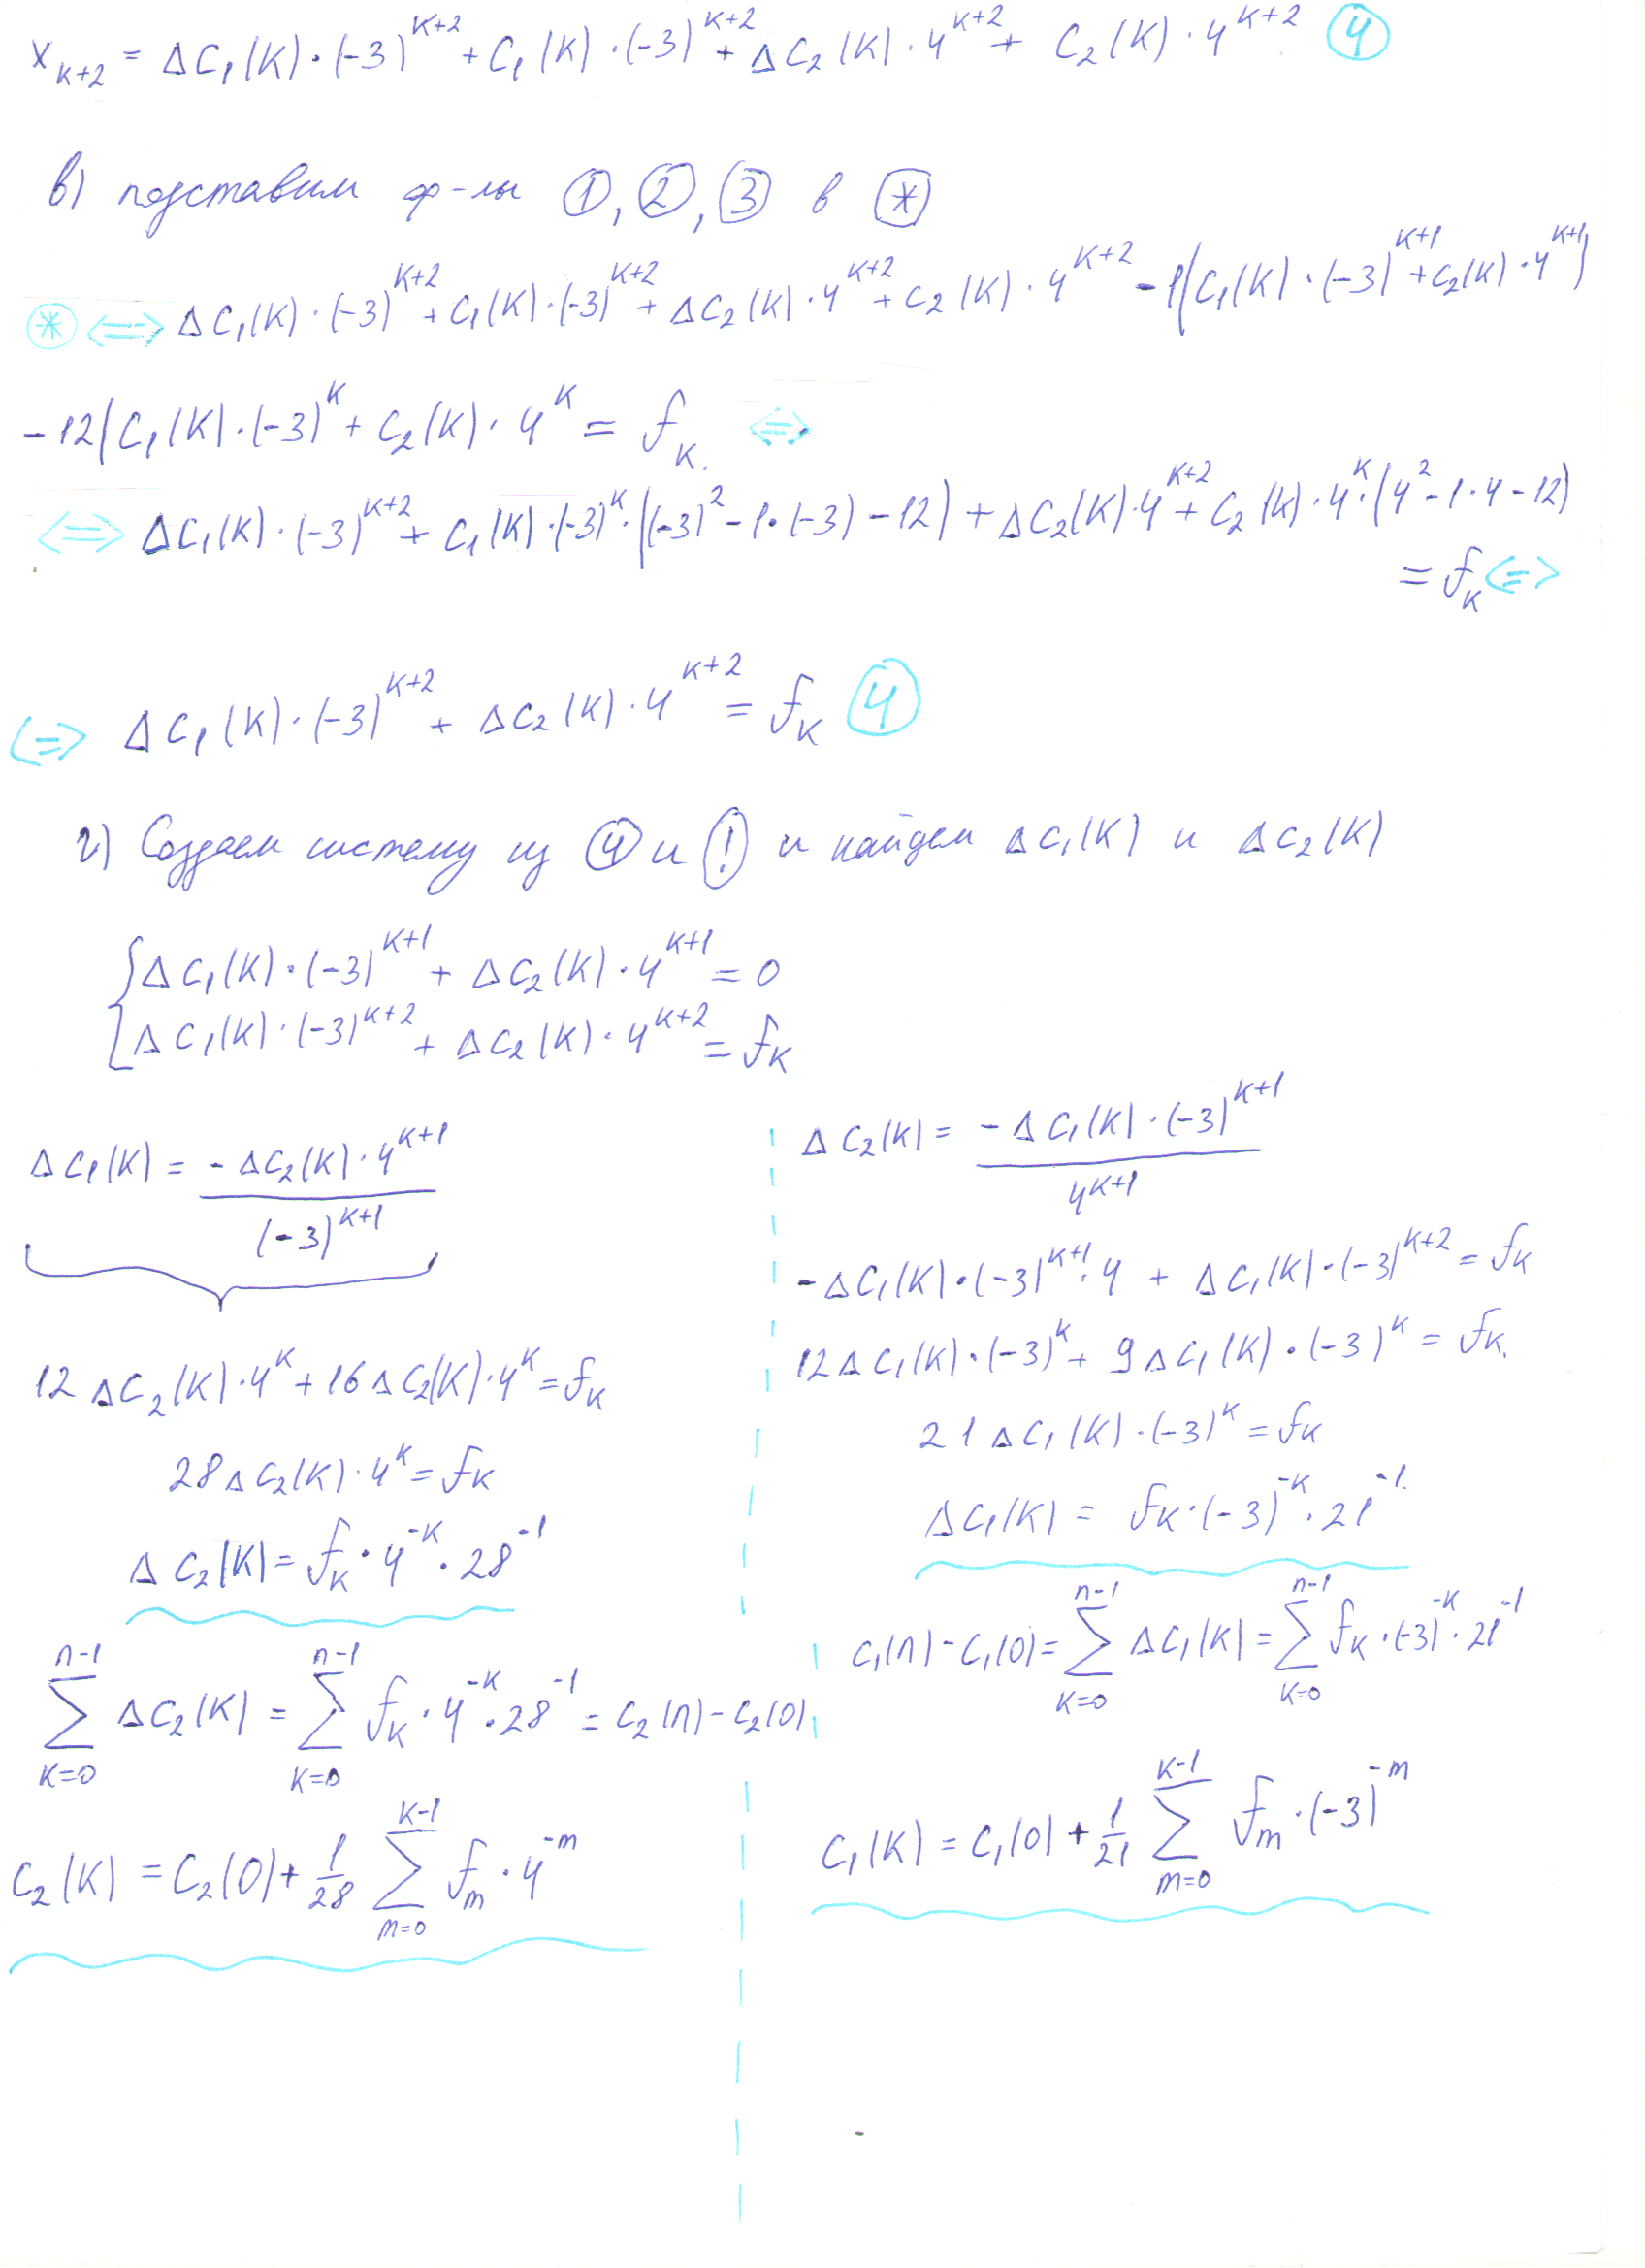 x_{k+2} = ΔC₁(k)·(-3)^{k+2} + C₁(k)·(-3)^{k+2} + ΔC₂(k)·4^{k+2} + C₂(k)·4^{k+2} ④
в) подставим ф-лы ①, ②, ③ в ⊛
⊛ <=> ΔC₁(k)·(-3)^{k+2} + C₁(k)·(-3)^{k+2} + ΔC₂(k)·4^{k+2} + C₂(k)·4^{k+2} - 1(C₁(k)·(-3)^{k+1} + C₂(k)·4^{k+1})
- 12(C₁(k)·(-3)^k + C₂(k)·4^k = f_k. <=>
<=> ΔC₁(k)·(-3)^{k+2} + C₁(k)·(-3)^k·((-3)² - 1·(-3) - 12) + ΔC₂(k)·4^{k+2} + C₂(k)·4^k·(4² - 1·4 - 12)
= f_k <=>
<=> ΔC₁(k)·(-3)^{k+2} + ΔC₂(k)·4^{k+2} = f_k ④
г) Создаем систему из ④ и (!) и найдем ΔC₁(k) и ΔC₂(k)
{ ΔC₁(k)·(-3)^{k+1} + ΔC₂(k)·4^{k+1} = 0
ΔC₁(k)·(-3)^{k+2} + ΔC₂(k)·4^{k+2} = f_k
ΔC₁(k) = \frac{-ΔC₂(k)·4^{k+1}}{(-3)^{k+1}}
12ΔC₂(k)·4^k + 16ΔC₂(k)·4^k = f_k
28ΔC₂(k)·4^k = f_k
ΔC₂(k) = f_k·4^{-k}·28^{-1}
\sum_{k=0}^{n-1} ΔC₂(k) = \sum_{k=0}^{n-1} f_k·4^{-k}·28^{-1} = C₂(n) - C₂(0)
C₂(k) = C₂(0) + \frac{1}{28} \sum_{m=0}^{k-1} f_m·4^{-m}
ΔC₂(k) = \frac{-ΔC₁(k)·(-3)^{k+1}}{4^{k+1}}
-ΔC₁(k)·(-3)^{k+1}·4 + ΔC₁(k)·(-3)^{k+2} = f_k
12ΔC₁(k)·(-3)^k + 9ΔC₁(k)·(-3)^k = f_k.
21ΔC₁(k)·(-3)^k = f_k
ΔC₁(k) = f_k·(-3)^{-k}·21^{-1}
C₁(n) - C₁(0) = \sum_{k=0}^{n-1} ΔC₁(k) = \sum_{k=0}^{n-1} f_k·(-3)^{-k}·21^{-1}
C₁(k) = C₁(0) + \frac{1}{21} \sum_{m=0}^{k-1} f_m·(-3)^{-m}